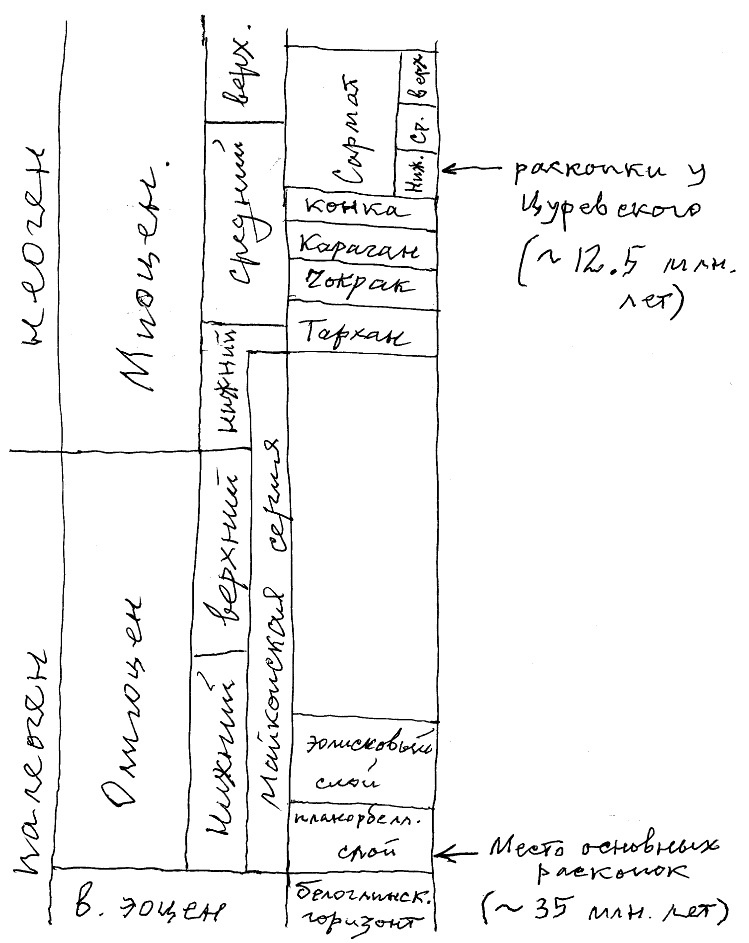 неоген
палеоген
Миоцен.
Олигоцен
в. эоцен
верх.
средний
нижний
верхний
нижний
Майкопская серия
Сармат
верх
Ср.
Ниж.
конка
Караган
Чокрак
Тархан
слой
планорбелл.
слой
белоглинск.
горизонт
раскопки у
Цуревского
(~12.5 млн.
лет)
Место основных
раскопок
(~35 млн. лет)